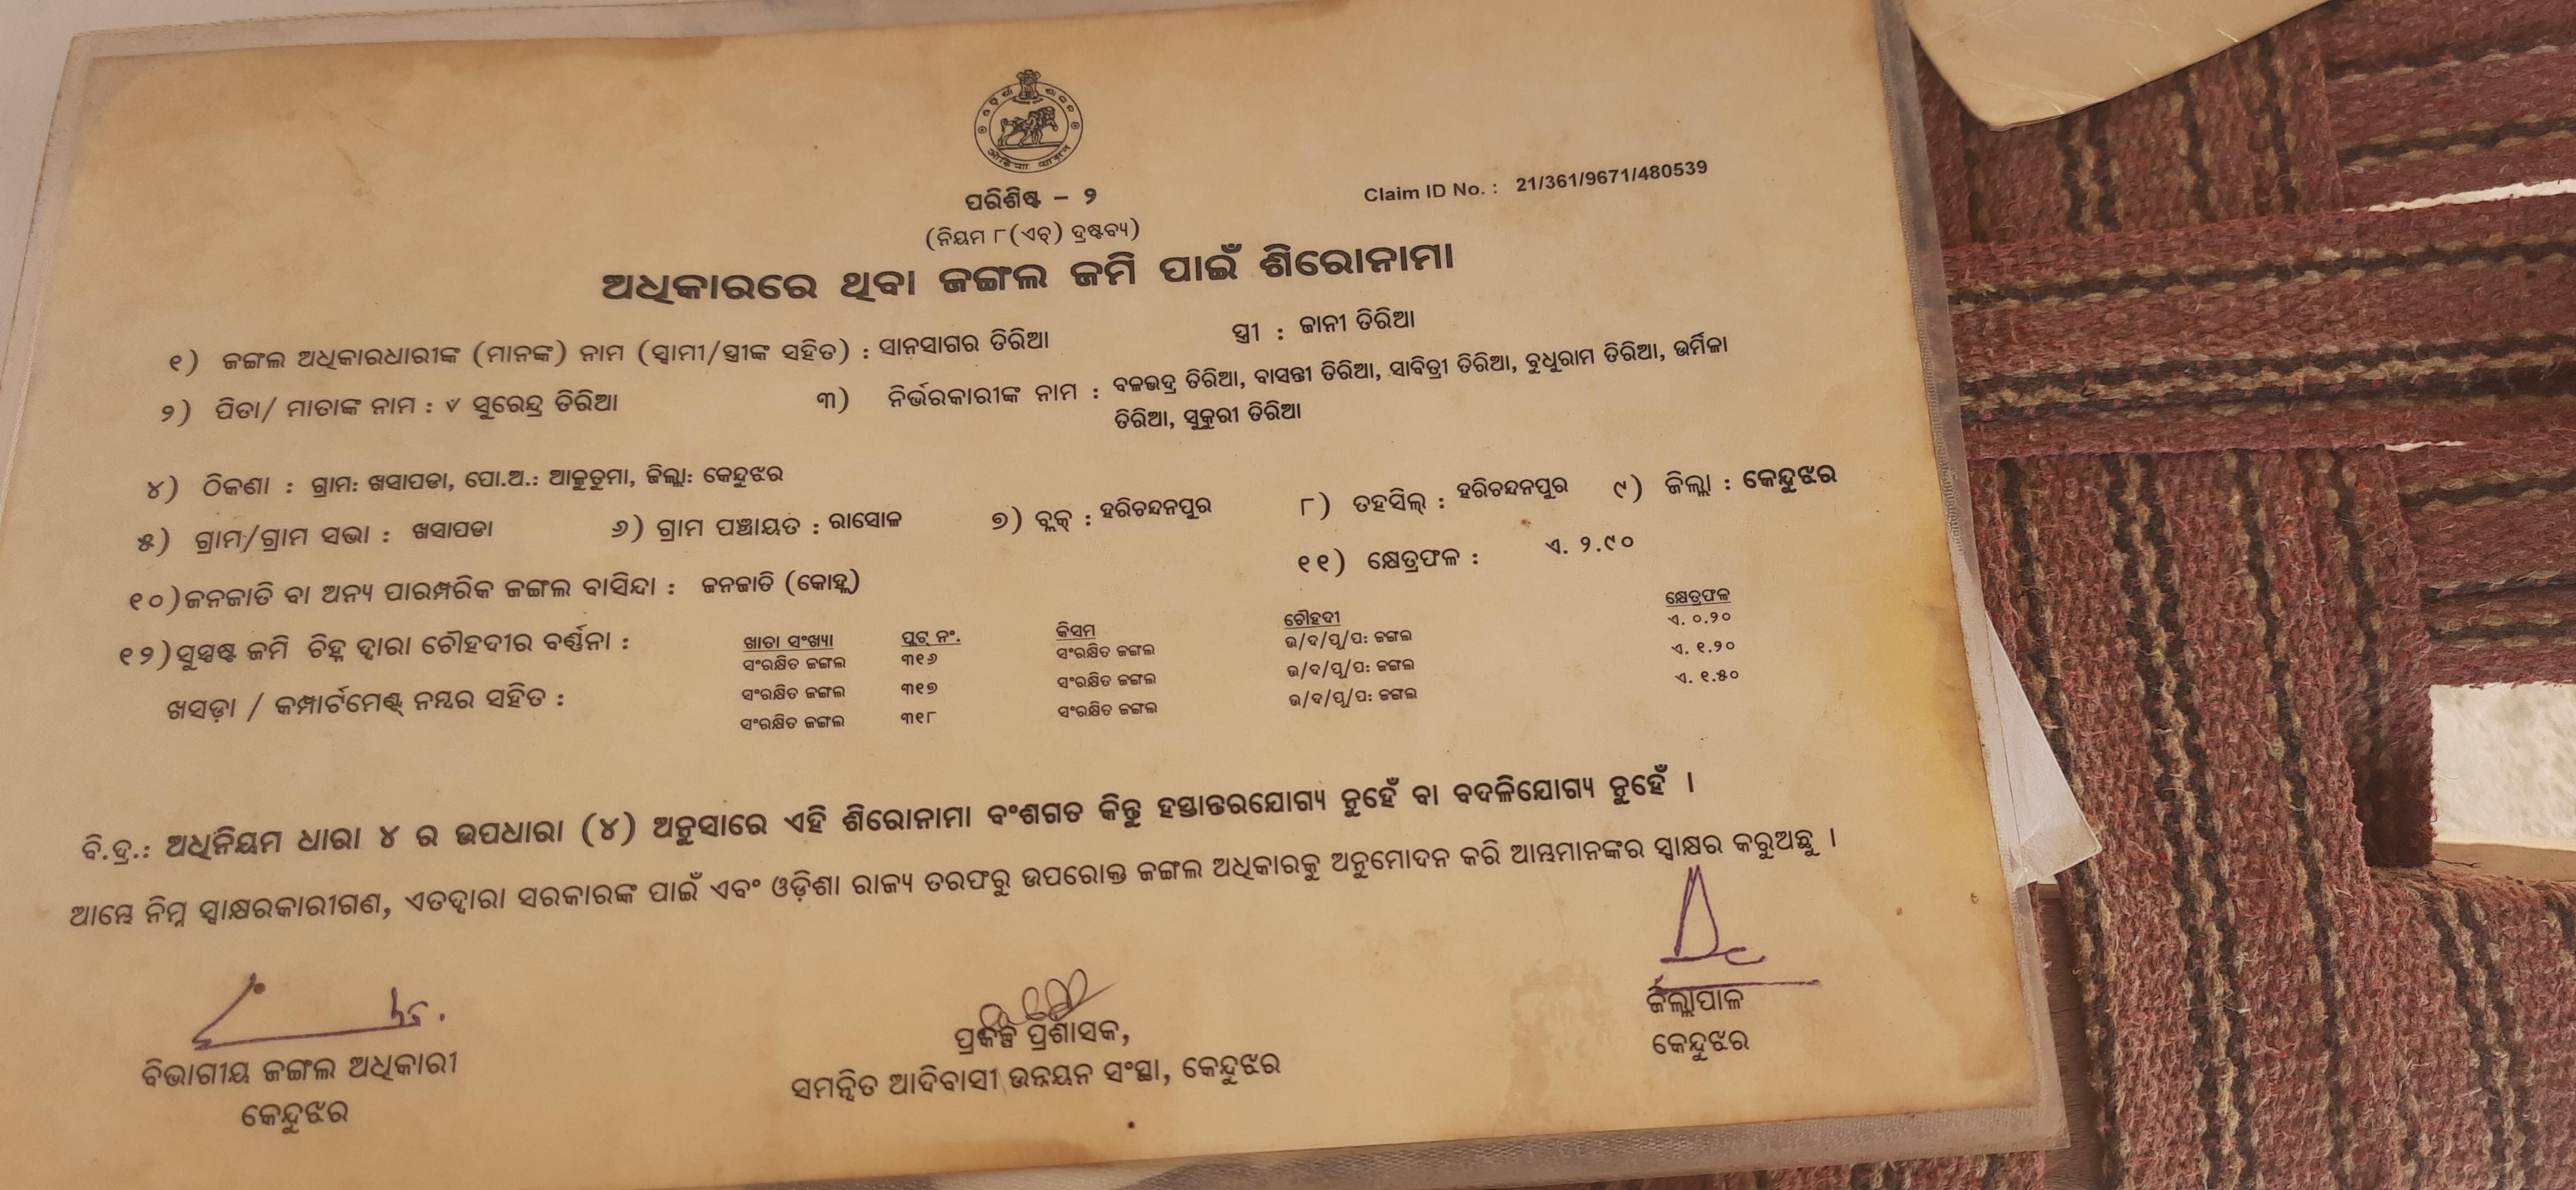 ପରିଶିଷ୍ଟ – ୨
Claim ID No. : 21/361/9671/480539
(ନିୟମ ୮(ଏଚ୍) ଦ୍ରଷ୍ଟବ୍ୟ)
ଅଧିକାରରେ ଥିବା ଜଙ୍ଗଲ ଜମି ପାଇଁ ଶିରୋନାମା
୧) ଜଙ୍ଗଲ ଅଧିକାରଧାରୀଙ୍କ (ମାନଙ୍କ) ନାମ (ସ୍ୱାମୀ/ସ୍ତ୍ରୀଙ୍କ ସହିତ) : ସାନସାଗର ତିରିଆ ସ୍ତ୍ରୀ : ଜାନୀ ତିରିଆ
୨) ପିତା/ ମାତାଙ୍କ ନାମ : ୰ ସୁରେନ୍ଦ୍ର ତିରିଆ ୩) ନିର୍ଭରକାରୀଙ୍କ ନାମ : ବଳଭଦ୍ର ତିରିଆ, ବାସନ୍ତୀ ତିରିଆ, ସାବିତ୍ରୀ ତିରିଆ, ବୁଧୁରାମ ତିରିଆ, ଉର୍ମିଳା
ତିରିଆ, ସୁକୁରୀ ତିରିଆ
୪) ଠିକଣା : ଗ୍ରାମ: ଖସାପଡା, ପୋ.ଅ.: ଆଳୁତୁମା, ଜିଲ୍ଲା: କେନ୍ଦୁଝର
୫) ଗ୍ରାମ/ଗ୍ରାମ ସଭା : ଖସାପଡା ୬) ଗ୍ରାମ ପଞ୍ଚାୟତ : ରାସୋଳ ୭) ବ୍ଲକ୍ : ହରିଚନ୍ଦନପୁର ୮) ତହସିଲ୍ : ହରିଚନ୍ଦନପୁର ୯) ଜିଲ୍ଲା : କେନ୍ଦୁଝର
୧୦)ଜନଜାତି ବା ଅନ୍ୟ ପାରମ୍ପରିକ ଜଙ୍ଗଲ ବାସିନ୍ଦା : ଜନଜାତି (କୋହ୍ଲ) ୧୧) କ୍ଷେତ୍ରଫଳ : ଏ. ୨.୯୦
୧୨)ସୁସ୍ପଷ୍ଟ ଜମି ଚିହ୍ନ ଦ୍ୱାରା ଚୌହଦୀର ବର୍ଣ୍ଣନା :
ଖସଡ଼ା / କମ୍ପାର୍ଟମେଣ୍ଟ୍ ନମ୍ବର ସହିତ :
ଖାତା ସଂଖ୍ୟା ପ୍ଲଟ୍ ନଂ. କିସମ ଚୌହଦୀ କ୍ଷେତ୍ରଫଳ
ସଂରକ୍ଷିତ ଜଙ୍ଗଲ ୩୧୬ ସଂରକ୍ଷିତ ଜଙ୍ଗଲ ଉ/ଦ/ପୂ/ପ: ଜଙ୍ଗଲ ଏ. ୦.୨୦
ସଂରକ୍ଷିତ ଜଙ୍ଗଲ ୩୧୭ ସଂରକ୍ଷିତ ଜଙ୍ଗଲ ଉ/ଦ/ପୂ/ପ: ଜଙ୍ଗଲ ଏ. ୧.୨୦
ସଂରକ୍ଷିତ ଜଙ୍ଗଲ ୩୧୮ ସଂରକ୍ଷିତ ଜଙ୍ଗଲ ଉ/ଦ/ପୂ/ପ: ଜଙ୍ଗଲ ଏ. ୧.୫୦
ବି.ଦ୍ର.: ଅଧିନିୟମ ଧାରା ୪ ର ଉପଧାରା (୪) ଅନୁସାରେ ଏହି ଶିରୋନାମା ବଂଶଗତ କିନ୍ତୁ ହସ୍ତାନ୍ତରଯୋଗ୍ୟ ନୁହେଁ ବା ବଦଳିଯୋଗ୍ୟ ନୁହେଁ ।
ଆମ୍ଭେ ନିମ୍ନ ସ୍ୱାକ୍ଷରକାରୀଗଣ, ଏତଦ୍ୱାରା ସରକାରଙ୍କ ପାଇଁ ଏବଂ ଓଡ଼ିଶା ରାଜ୍ୟ ତରଫରୁ ଉପରୋକ୍ତ ଜଙ୍ଗଲ ଅଧିକାରକୁ ଅନୁମୋଦନ କରି ଆମ୍ଭମାନଙ୍କର ସ୍ୱାକ୍ଷର କରୁଅଛୁ ।
ବିଭାଗୀୟ ଜଙ୍ଗଲ ଅଧିକାରୀ
କେନ୍ଦୁଝର
ପ୍ରକଳ୍ପ ପ୍ରଶାସକ,
ସମନ୍ୱିତ ଆଦିବାସୀ ଉନ୍ନୟନ ସଂସ୍ଥା, କେନ୍ଦୁଝର
ଜିଲ୍ଲାପାଳ
କେନ୍ଦୁଝର